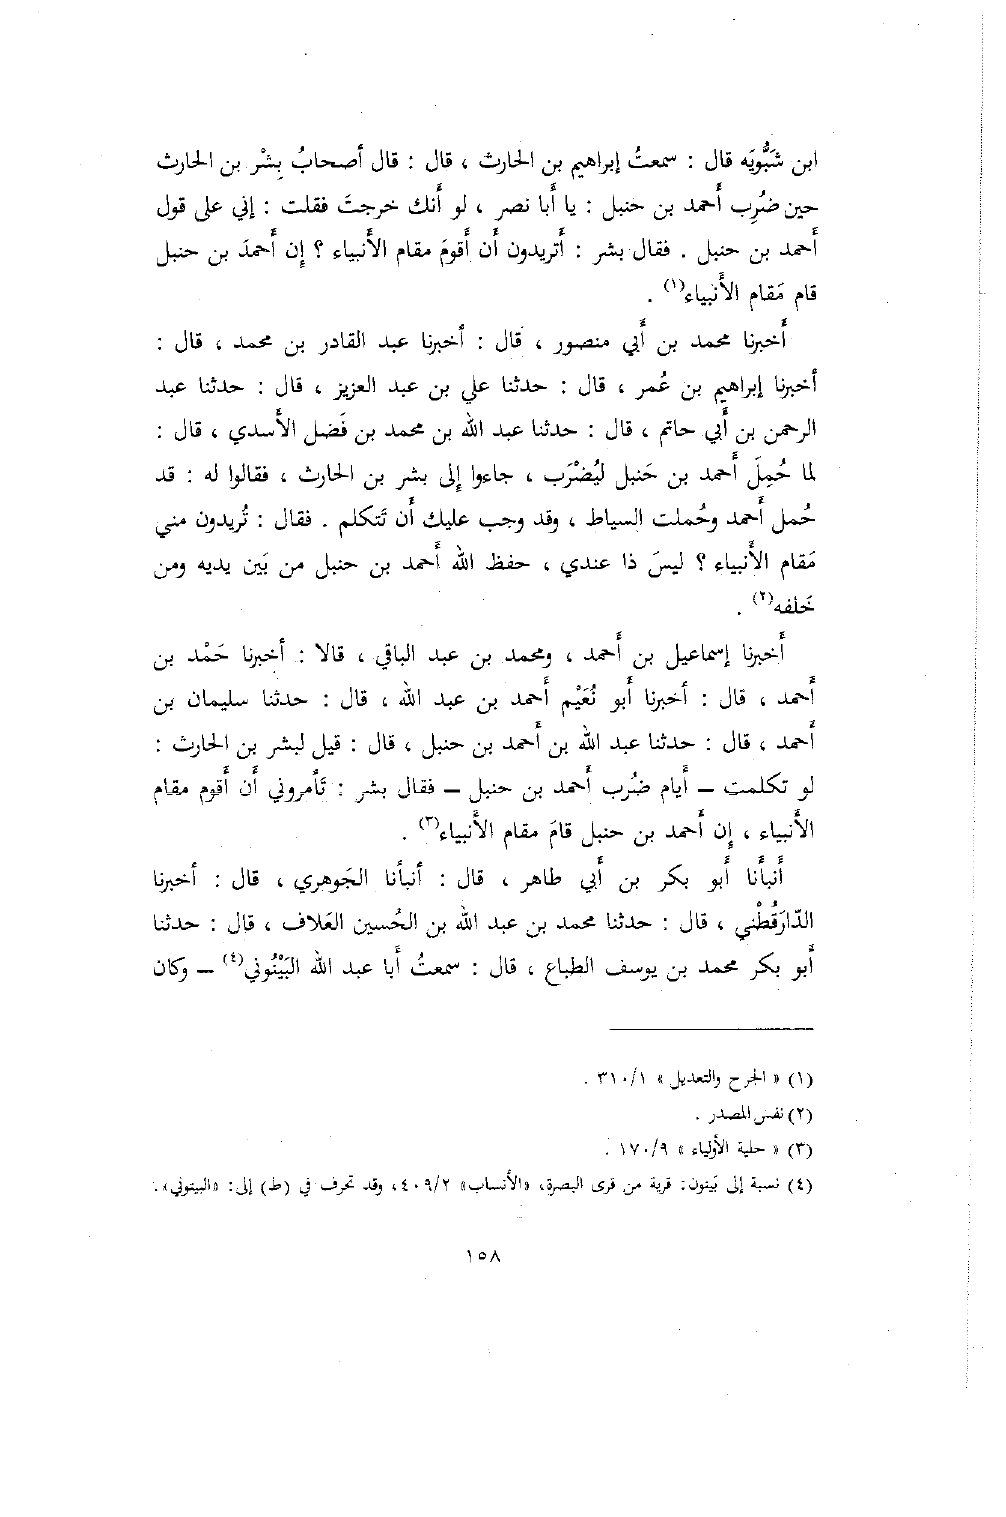 ابن شَبُّويَه قال : سمعتُ إبراهيم بن الحارث ، قال : قال أصحابُ بِشْر بن الحارث
حين ضُرِب أَحمد بن حنبل : يا أَبا نصر ، لو أَنك خرجتَ فقلت : إني على قول
أَحمد بن حنبل . فقال بشر : أَتريدون أَن أَقومَ مقام الأَنبياء ؟ إِن أَحمدَ بن حنبل
قام مَقام الأَنبياء(١) .
أَخبرنا محمد بن أَبي منصور ، قال : أخبرنا عبد القادر بن محمد ، قال :
أخبرنا إبراهيم بن عُمر ، قال : حدثنا علي بن عبد العزيز ، قال : حدثنا عبد
الرحمن بن أَبي حاتم ، قال : حدثنا عبد الله بن محمد بن فَضل الأَسدي ، قال :
لما حُمِلَ أَحمد بن حَنبل ليُضْرَب ، جاءوا إِلى بشر بن الحارث ، فقالوا له : قد
حُمل أَحمد وحُملت السياط ، وقد وجب عليك أَن تَتكلم . فقال : تُريدون مني
مَقام الأَنبياء ؟ ليسَ ذا عندي ، حفظ الله أَحمد بن حنبل من بَين يديه ومن
خَلفه(٢) .
أَخبرنا إسماعيل بن أَحمد ، ومحمد بن عبد الباقي ، قالا : أخبرنا حَمْد بن
أَحمد ، قال : أخبرنا أَبو نُعَيْم أَحمد بن عبد الله ، قال : حدثنا سليمان بن
أَحمد ، قال : حدثنا عبد الله بن أَحمد بن حنبل ، قال : قيل لبشر بن الحارث :
لو تكلمت – أَيام ضُرب أَحمد بن حنبل – فقال بشر : تَأْمروني أَن أَقوم مقام
الأَنبياء ، إِن أَحمد بن حنبل قامَ مقام الأَنبياء(٣) .
أَنبأَنا أَبو بكر بن أَبي طاهر ، قال : أنبأنا الجَوهري ، قال : أخبرنا
الدّارَقُطْني ، قال : حدثنا محمد بن عبد الله بن الحُسين العَلاف ، قال : حدثنا
أَبو بكر محمد بن يوسف الطباع ، قال : سمعتُ أَبا عبد الله البَيْنُوني(٤) – وكان
(١) « الجرح والتعديل » ٣١٠/١ .
(٢) نفس المصدر .
(٣) « حلية الأولياء » ١٧٠/٩ .
(٤) نسبة إلى بَينون: قرية من قرى البصرة، «الأنساب» ٤٠٩/٢، وقد تحرف في (ط) إلى: «البيتوني».
١٥٨